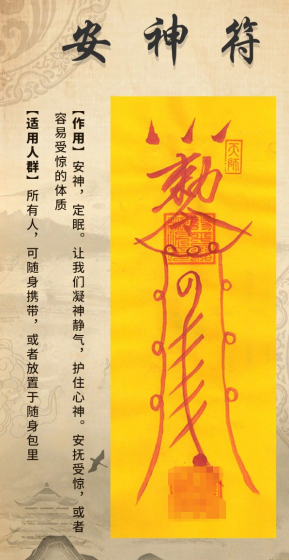 安神符
【作用】安神，定眠。让我们凝神静气，护住心神。安抚受惊，或者
容易受惊的体质
【适用人群】所有人，可随身携带，或者放置于随身包里
敕令
天師